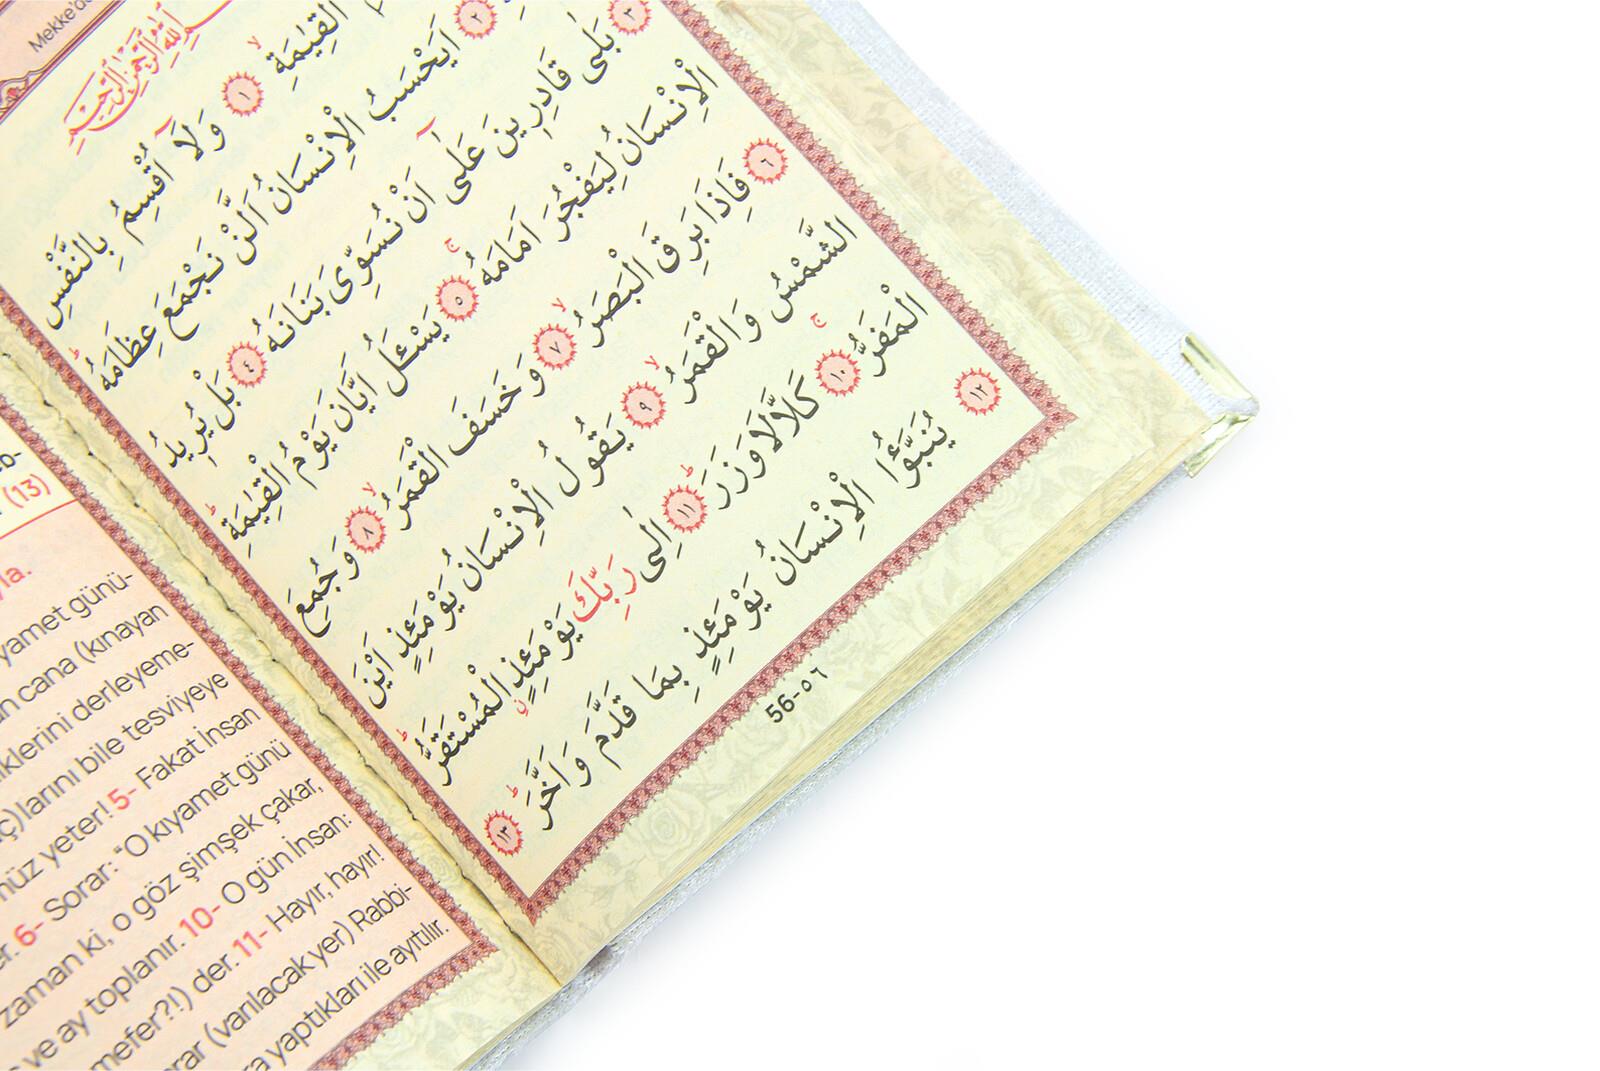 Mekke'de
بِسْمِ اللّٰهِ الرَّحْمٰنِ الرَّحِيمِ
الْقِيٰمَةِ ۙ ﴿١﴾ وَلَٓا اُقْسِمُ بِالنَّفْسِ
﴿٢﴾ اَيَحْسَبُ الْاِنْسَانُ اَلَّنْ نَجْمَعَ عِظَامَهُ ۜ
﴿٣﴾ بَلٰى قَادِرِينَ عَلٰٓى اَنْ نُسَوِّىَ بَنَانَهُ ﴿٤﴾ بَلْ يُرِيدُ
الْاِنْسَانُ لِيَفْجُرَ اَمَامَهُ ۚ ﴿٥﴾ يَسْـَٔلُ اَيَّانَ يَوْمُ الْقِيٰمَةِ ۜ
﴿٦﴾ فَاِذَا بَرِقَ الْبَصَرُ ۙ ﴿٧﴾ وَخَسَفَ الْقَمَرُ ۙ ﴿٨﴾ وَجُمِعَ
الشَّمْسُ وَالْقَمَرُ ۙ ﴿٩﴾ يَقُولُ الْاِنْسَانُ يَوْمَئِذٍ اَيْنَ
الْمَفَرُّ ۚ ﴿١٠﴾ كَلَّا لَا وَزَرَ ۜ ﴿١١﴾ اِلٰى رَبِّكَ يَوْمَئِذٍ الْمُسْتَقَرُّ ۜ
﴿١٢﴾ يُنَبَّؤُا الْاِنْسَانُ يَوْمَئِذٍ بِمَا قَدَّمَ وَاَخَّرَ ۜ ﴿١٣﴾
56-٥٦
(13)
yla.
yamet günü-
n cana (kınayan
iklerini derleyeme-
ç)larını bile tesviyeye
müz yeter! 5- Fakat insan
er. 6- Sorar: "O kıyamet günü
zaman ki, o göz şimşek çakar,
ve ay toplanır. 10- O gün İnsan:
mefer?!) der. 11- Hayır, hayır!
rar (varılacak yer) Rabbi-
ra yaptıkları ile ayrtılır.